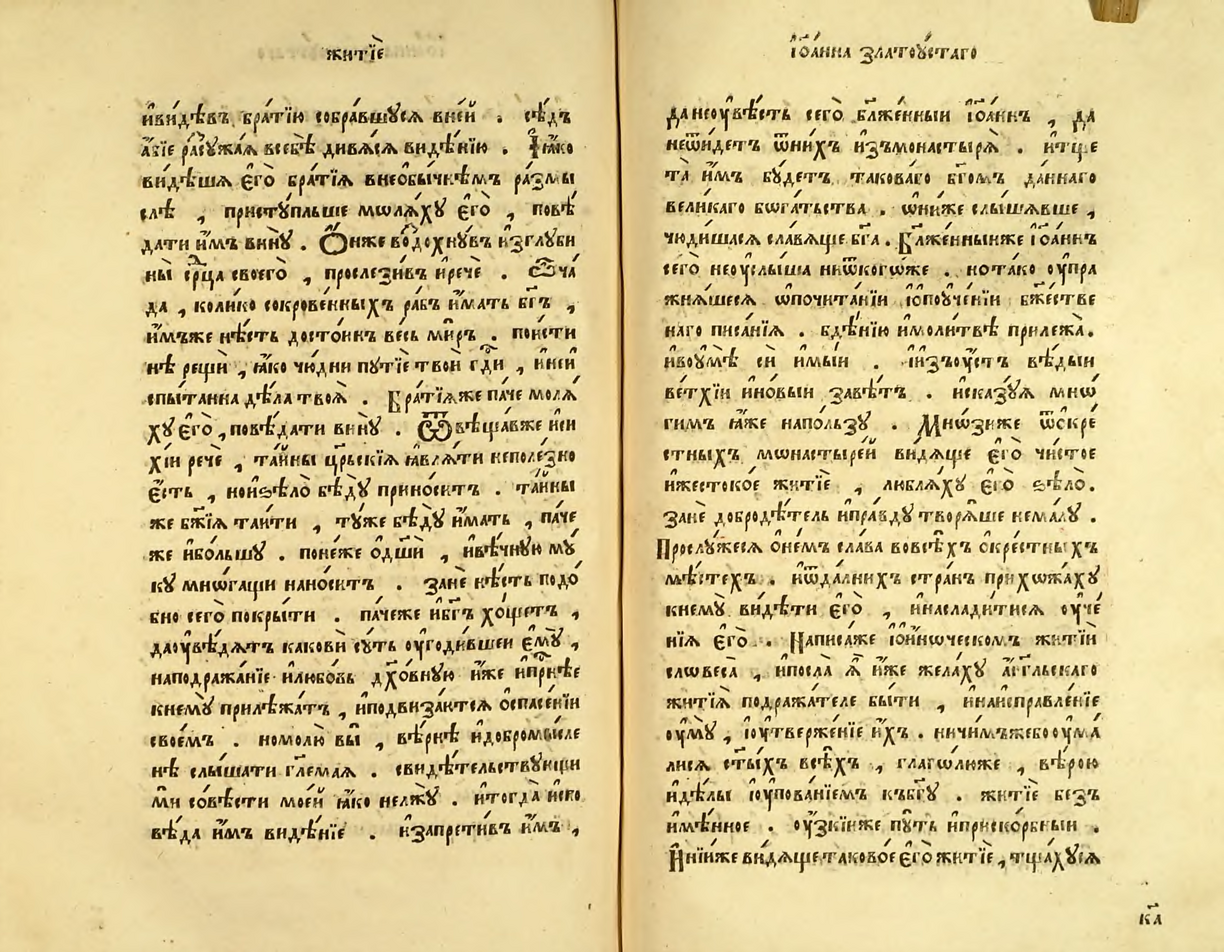 житїѐ
и҆ви́дѣвъ бра́тїю собра́вшꙋсѧ вне́й . сѣ́дъ
а҆́бїе расꙋжа́ѧ всебѣ̀ дивѧ́сѧ видѣ́нїю . І҆ꙗ҆́ко
видѣ́шѧ є҆го̀ бра́тїѧ внеѡбы́чнѣмъ ра́змы
слѣ , пристꙋ́пльше мѡлѧ́хꙋ є҆го̀ , повѣ́
дати и҆̀мъ винꙋ̀ . Ѻ҆́нже водохнꙋ́въ и҆зглꙋби
ны̀ ср҃ца своего̀ , прослези́въ и҆речѐ . Ѽча́
да , коли́ко сокрове́нныхъ ра́бъ и҆́мать бг҃ъ ,
и҆́мъже нѣ́сть досто́инъ весь ми́ръ . пои́сти
нѣ рещѝ , ꙗ҆́ко чю́дни пꙋтїѐ твоѝ гд҃и , и҆неи
спы́танна дѣ́ла твоѧ̀ . Бра́тїѧже па́че молѧ́
хꙋ є҆го̀ , повѣ́дати винꙋ̀ . Ѿвѣща́вже и҆си
хїи речѐ , та́йны цр҃ьскїѧ ꙗ҆влѧ́ти неполе́зно
є҆́сть , нои҆ѕѣлѡ̀ бѣдꙋ̀ прино́ситъ . та́йны
же бж҃їѧ таи́ти , тꙋ́же бѣдꙋ̀ и҆́мать , па́че
же и҆бо́льшꙋ . поне́же ѻ҆дш҃и , и҆вѣ́чную мꙋ́
кꙋ мнѡ́гащи нано́ситъ . занѐ нѣ́сть подо́
бно сего̀ покры́ти . па́чеже и҆бг҃ъ хо́щетъ ,
даоу҆вѣ́дѧтъ какови́ сꙋть оу҆годи́вшеи є҆мꙋ̀ ,
наподража́нїе и҆любо́вь дх҃о́внꙋю и҆́же и҆пре́же
кнемꙋ̀ прилѣжа́тъ , и҆подвиза́ютсѧ оспасе́нїи
свое́мъ . номолю̀ вы̀ , вѣ́рнѣ и҆добромы́сле
нѣ слы́шати гл҃емаѧ . свидѣ́тельствꙋющи
мѝ со́вѣсти мое́й ꙗ҆́ко нелжꙋ̀ . и҆тогда̀ и҆спо
вѣ́да и҆̀мъ видѣ́нїе . и҆запрети́въ и҆̀мъ ,
і҆ѡ҃а́нна златоꙋ́стаго
да неоу҆вѣ́сть сего̀ бл҃же́нныи і҆ѡ҃а́ннъ , да
неѿи́детъ ѿни́хъ и҆зъмонастырѧ̀ . и҆тще
та̀ и҆̀мъ бꙋ́детъ таково́го бг҃омъ да́ннаго
вели́каго бѡга́тьства . ѡ҆ни́же слы́шѧвше ,
чюди́шасѧ сла́вѧще бг҃а . Бл҃же́нныиже і҆ѡ҃а́ннъ
сего̀ неоу҆слы́ша ниѿкого́же . нота́ко оу҆пра
жнѧ́шесѧ ѡ҆почита́нїи і҆ѡпоꙋче́нїи бж҃е́стве
наго писа́нїѧ . бдѣ́нїю и҆моли́твѣ прилежа̀ .
и҆воу҆мѣ̀ сѝ и҆мы́и . и҆и҆зъоу҆́стъ вѣ́дыи
ве́тхїи и҆но́выи завѣ́тъ . и҆сказꙋѧ мнѡ́
гимъ ꙗ҆́же напо́льзꙋ . Мнѡ́зиже ѿскре́
стныхъ мѡнастыре́й видѧ́ще є҆го̀ чи́стое
и҆же́стокое житїѐ , люблѧ́хꙋ є҆го̀ ѕѣлѡ̀ .
занѐ добродѣ́тель и҆пра́вдꙋ творѧ́ше нема́лꙋ .
Прослꙋ́жесѧ ѻ҆не́мъ сла́ва вовсѣ́хъ ѻ҆кре́стныхъ
мѣ́стехъ . и҆ѿда́лнихъ стра́нъ прихѡжа́хꙋ
кнемꙋ̀ ви́дѣти є҆го̀ , и҆наслади́тисѧ оу҆че́
нїѧ є҆го̀ . Написа́же і҆ѡи҆́нѡческомъ житїѝ
слѡвеса̀ , и҆посла̀ ѧ҆̀ и҆́же жела́хꙋ а҆́гг҃льскаго
житїѧ̀ подража́теле бы́ти , и҆наи҆справле́нїе
оу҆мꙋ̀ , і҆оу҆твержє́нїе и҆́хъ . ничи́мъжебооу҆ма́
лисѧ ст҃ы́хъ всѣ́хъ , глаго́люже , вѣ́рою
и҆дѣ́лы і҆оу҆пова́нїемъ къбг҃ꙋ . житїѐ безъ
и҆мѣ́нное . оу҆́зкїиже пꙋ́ть и҆приско́рбныи .
И҆нїи́же ви́дѧще таково́е є҆го̀ житїѐ , тща́хꙋсѧ
к҃а